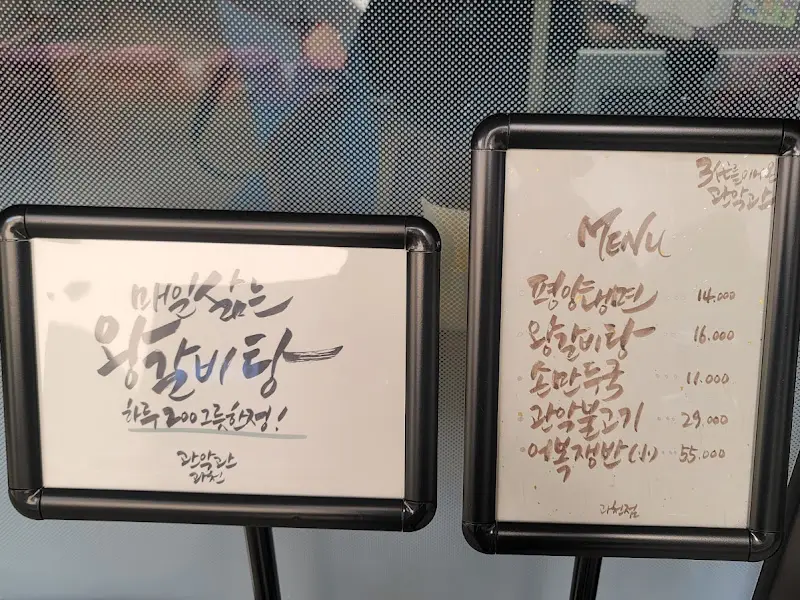 매일 삶는
왕갈비탕
하루 200그릇 한정!
관악관스
과천
3代를 이어온
관악관스
MENU
평양냉면 14.000
왕갈비탕 16.000
손만두국 11.000
관악불고기 29.000
어복쟁반(小) 55.000
과천점